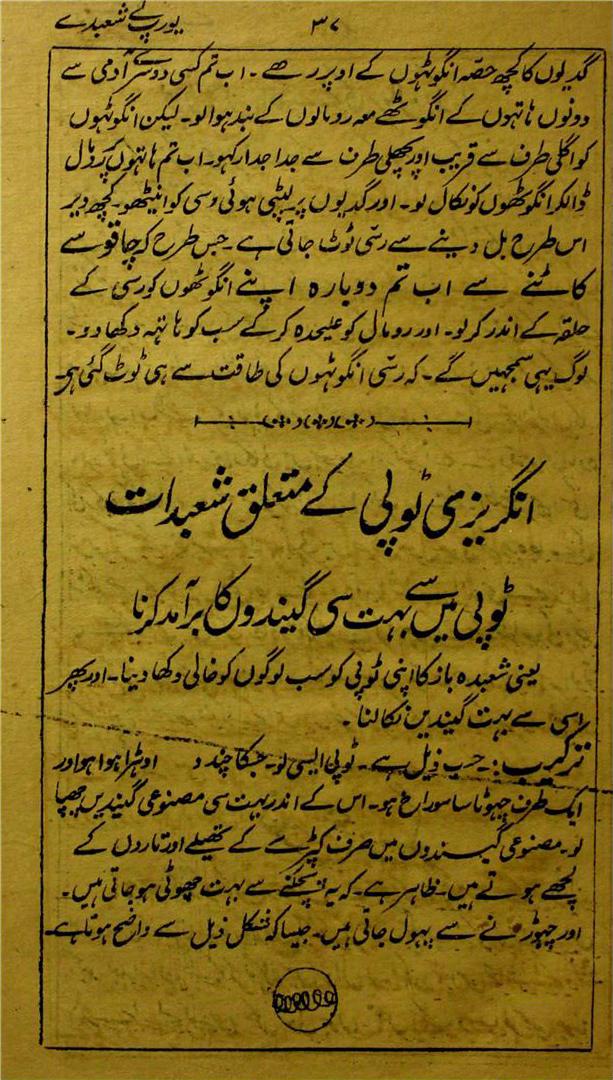 ۳۷
یورپ کے شعبدے
گدیوں کا کچھ حصّہ انگوٹہوں کے اوپر رھے ۔ اب تم کسی دوسرے آدمی سے
دونوں ہاتہوں کے انگوٹھے معہ رومالوں کے بندہوالو۔ لیکن انگوٹہوں
کو اگلی طرف سے قریب اور پچھلی طرف سے جدا جدا رکہو۔ اب تم ہاتہوں پر رومال
ڈالکر انگوٹھوں کو نکال لو ۔ اور گدیوں پر لپٹی ہوئی رسی کو اینٹھو ۔ کچھ دیر
اس طرح بل دینے سے رسّی ٹوٹ جاتی ہے ۔ جس طرح کہ چاقو سے
کاٹنے سے اب تم دوبارہ اپنے انگوٹھوں کو رسی کے
حلقہ کے اندر کر لو ۔ اور رومال کو علیحدہ کرکے سب کو ہاتہہ دکھا دو ۔
لوگ یہی سمجہیں گے ۔ کہ رسّی انگوٹہوں کی طاقت سے ہی ٹوٹ گئی ہے
انگریزی ٹوپی کے متعلق شعبدات
ٹوپی میں سے بہت سی گیندوں کا برآمد کرنا
یعنی شعبدہ باز کا اپنی ٹوپی کو سب لوگوں کو خالی دکھا دینا ۔ اور پھر
اسی سے بہت گیندیں نکالنا ۔
ترکیب :۔ حسب ذیل ہے ۔ ٹوپی ایسی لو ۔ جسکا چند و ہوا ہو اور
ایک طرف چہوٹا سا سوراخ ہو ۔ اس کے اندر بہت سی مصنوعی گیندیں چھپا
لو ۔ مصنوعی گیندوں میں صرف کپڑے کے تھیلے اور تاروں کے
لچھے ہوتے ہیں ۔ ظاہر ہے ۔ کہ یہ پچکنے سے بہت چھوٹی ہو جاتی ہیں ۔
اور چہوڑنے سے پہول جاتی ہیں ۔ جیسا کہ شکل ذیل سے واضح ہوتا ہے